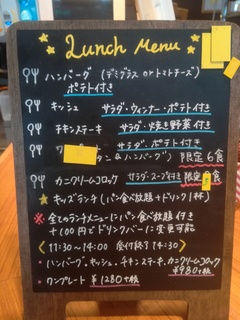 Lunch Menu
ハンバーグ (デミグラス orトマトチーズ)
ポテト付き
キッシュ サラダ・ウィンナー・ポテト付き
チキンステーキ サラダ・焼き野菜付き
ワ
タン&ハンバーグ) 限定6食
カニクリームコロッケ サラダ・スープ付き 限定 食
★キッズランチ(パン食べ放題+ドリンク1杯)
※全てのランチメニューにパン食べ放題付き
+100円でドリンクバーに変更可能
<11:30〜14:00 受付終了14:30>
・ハンバーグ、キッシュ、チキンステーキ、カニクリームコロッケ
¥980+税
・ワンプレート ¥1280+税